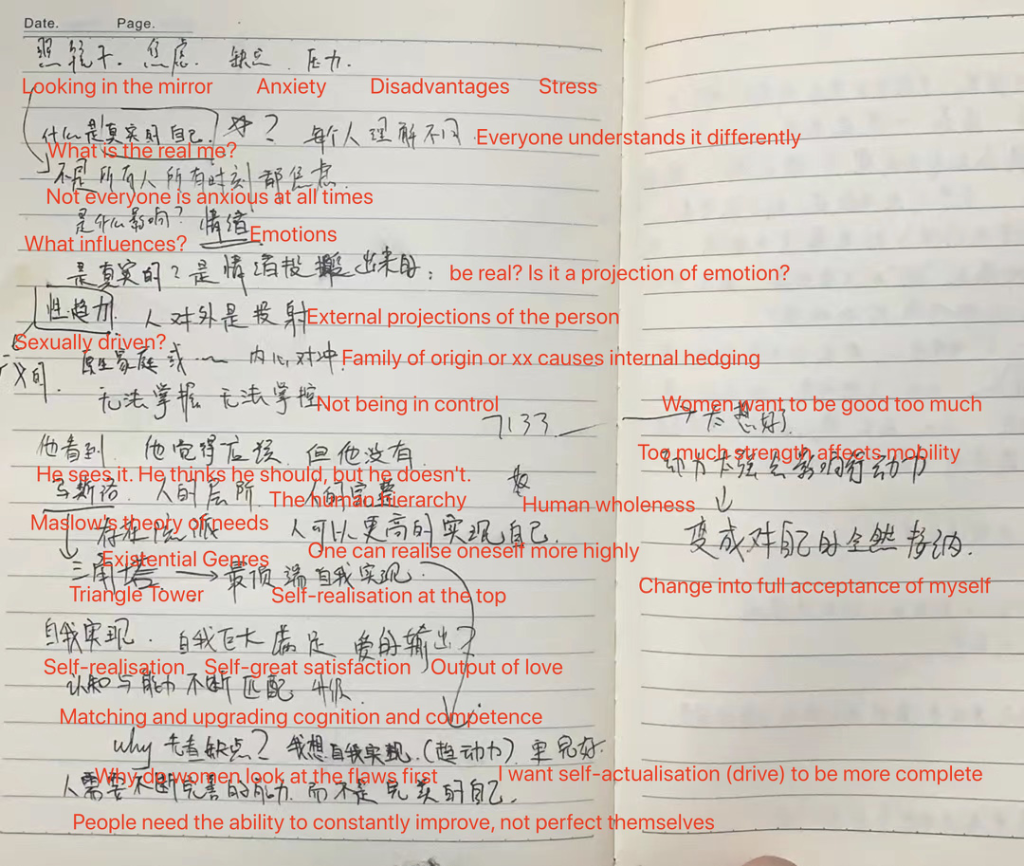 Date. Page.
照镜子. 焦虑. 缺点. 压力.
Looking in the mirror Anxiety Disadvantages Stress
什么是真实的自己? 每个人理解不同.
Everyone understands it differently
What is the real me?
不是所有人所有时刻都焦虑.
Not everyone is anxious at all times
是什么影响? 情绪
What influences? Emotions
是真实的? 是情绪投 出来的;
be real? Is it a projection of emotion?
性趋力 人对外是投射
External projections of the person
Sexually driven?
原生家庭或 内心对冲.
Family of origin or xx causes internal hedging
义的.
无法掌握 无法掌控
Not being in control
7133 → 太想好了
Women want to be good too much
他看到 他觉得应该. 但他没有.
He sees it. He thinks he should, but he doesn't.
动力太强会影响行动力
Too much strength affects mobility
马斯洛. 人的层阶. 人的完整
The human hierarchy Human wholeness
Maslow's theory of needs
存在 派 人可以更高的实现自己.
Existential Genres One can realise oneself more highly
变成对自己的全然接纳.
Change into full acceptance of myself
三角塔 → 最顶端自我实现.
Triangle Tower Self-realisation at the top
自我实现. 自我巨大满足 爱的输出?
Self-realisation Self-great satisfaction Output of love
认知与能力不断匹配 升级.
Matching and upgrading cognition and competence
why 先看缺点? 我想自我实现.(趋动力) 更完好.
Why do women look at the flaws first I want self-actualisation (drive) to be more complete
人需要不断完善的能力. 而不是完美的自己.
People need the ability to constantly improve, not perfect themselves